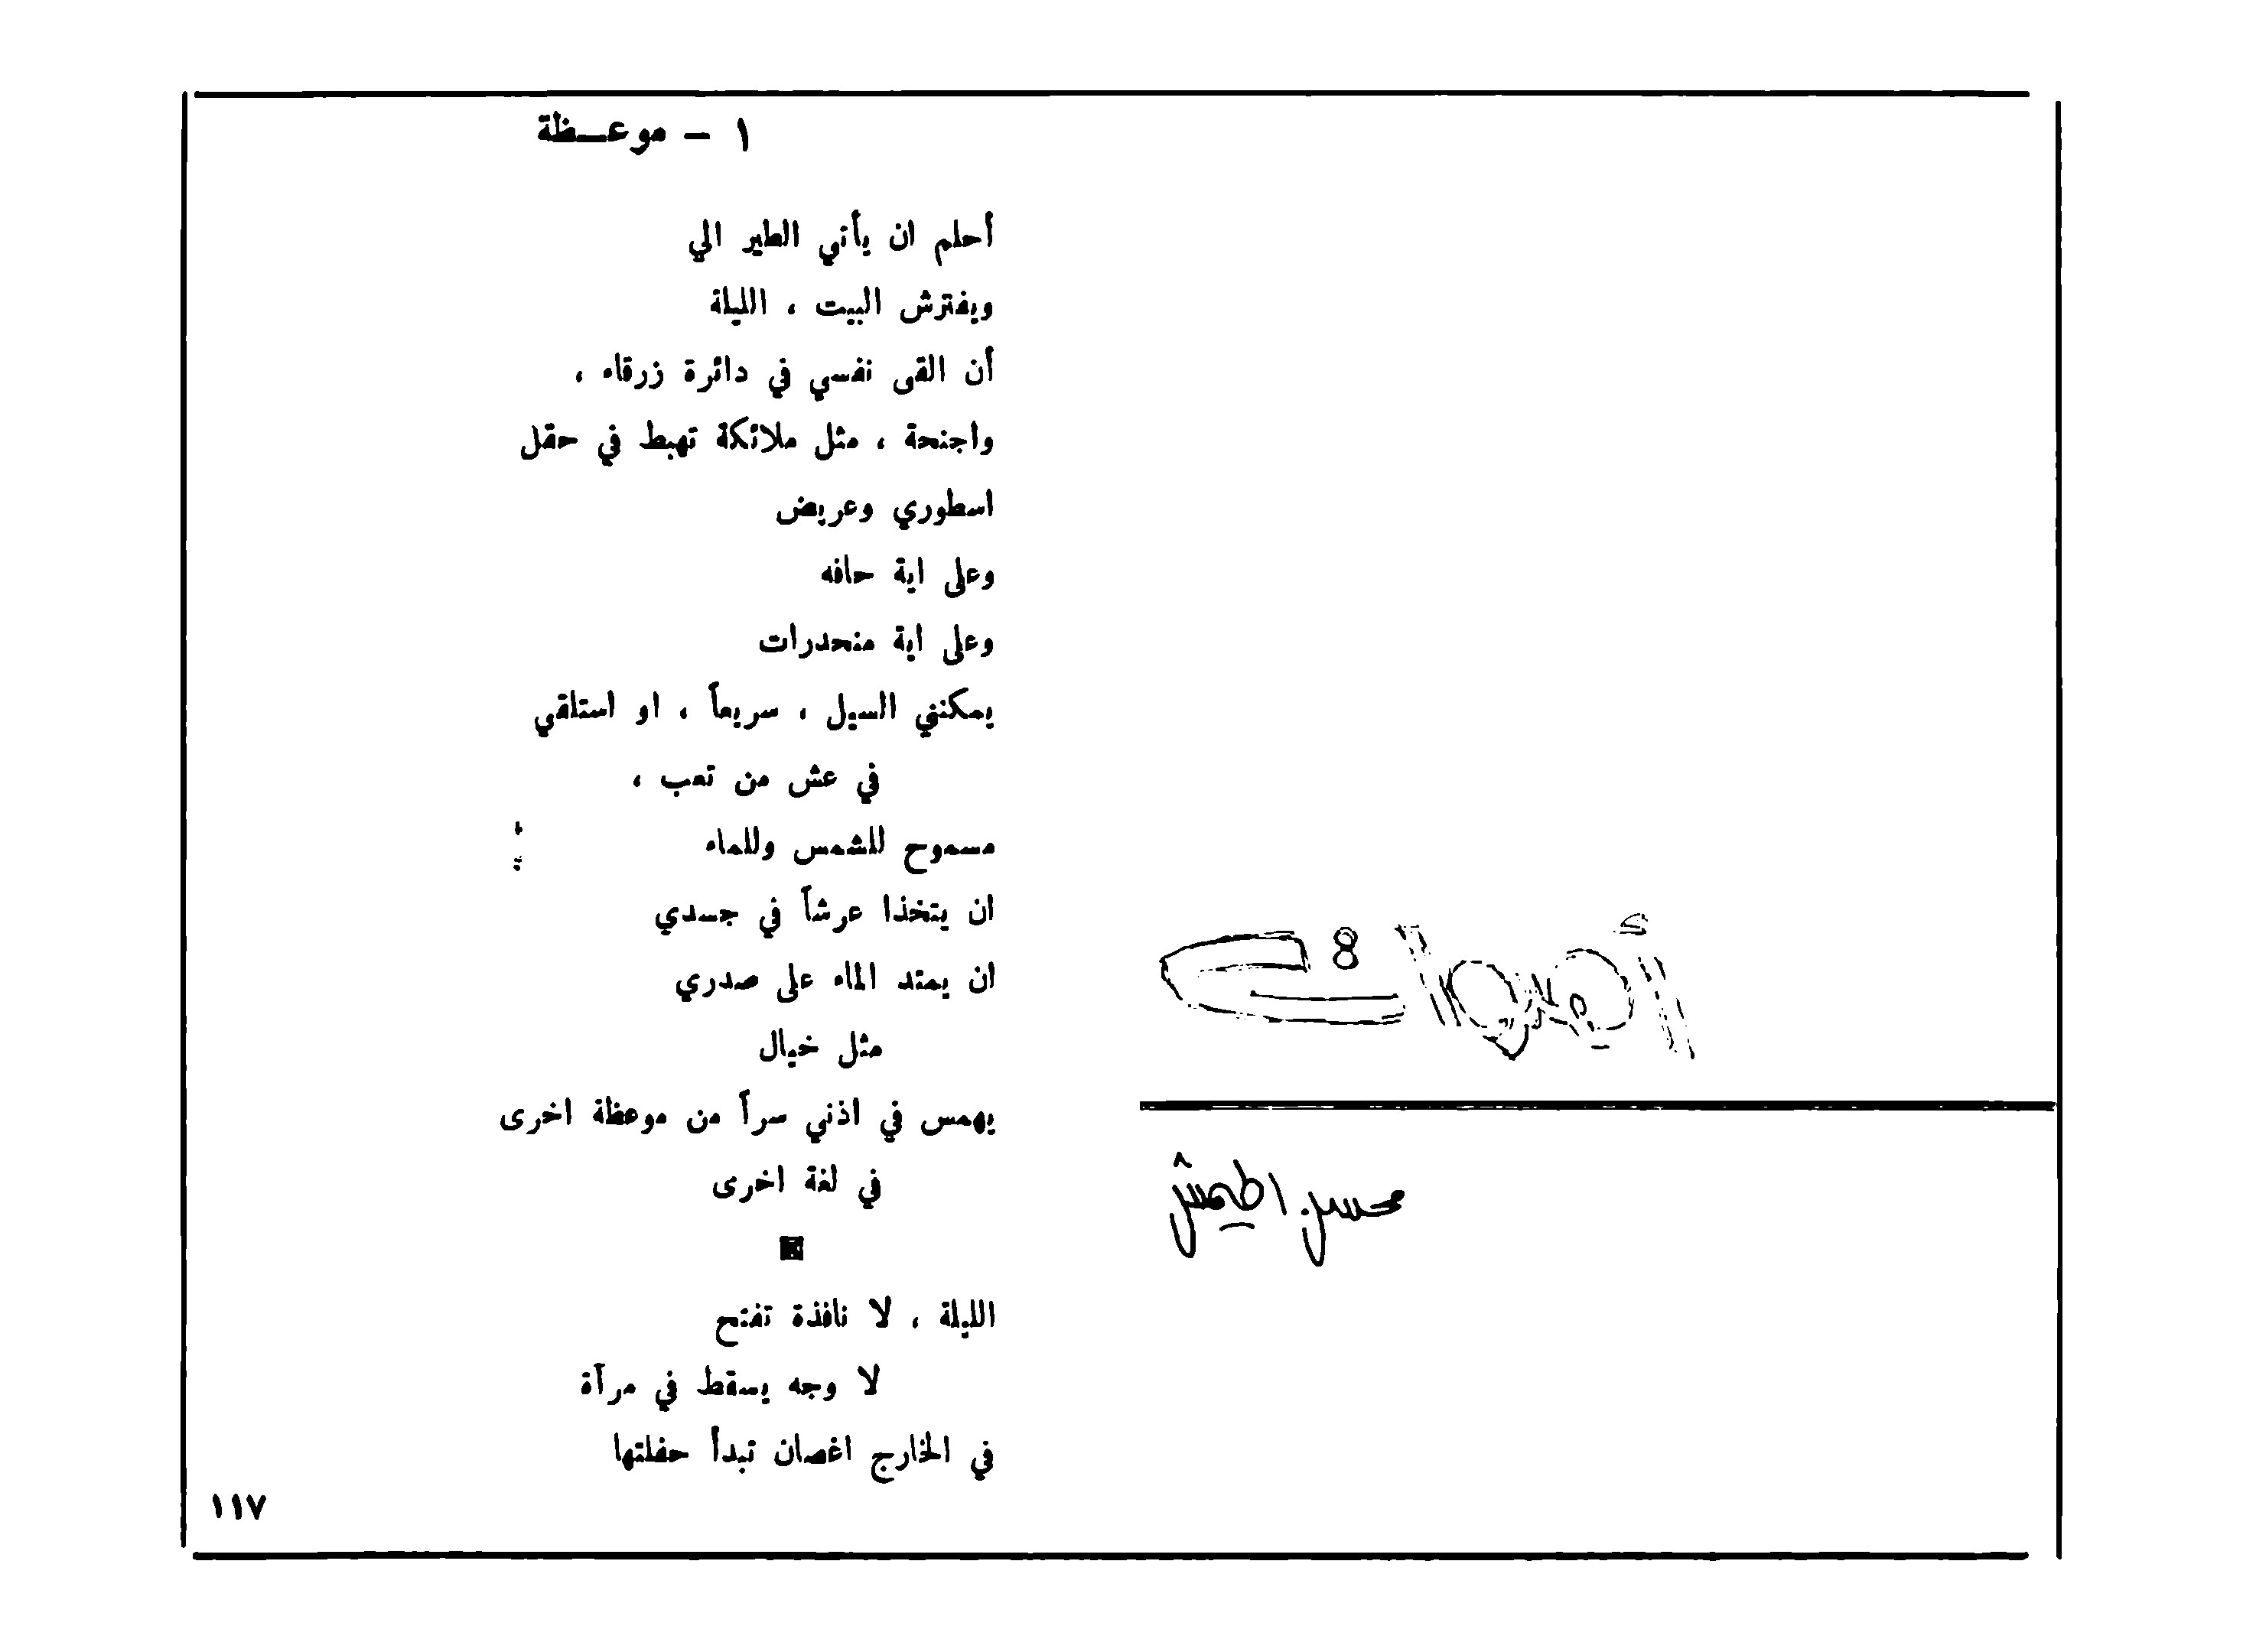 أصوات
محسن اطيمش
١ - موعـظة
أحلم ان يأتي الطير الي
ويفترش البيت ، الليلة
أن القى نفسي في دائرة زرقاء ،
واجنحة ، مثل ملائكة تهبط في حقل
اسطوري وعريض
وعلى اية حافه
وعلى اية منحدرات
يمكنني السيل ، سريعاً ، او استلقي
في عش من تعب ،
مسموح للشمس وللماء
ان يتخذا عرشاً في جسدي
ان يمتد الماء على صدري
مثل خيال
يهمس في اذني سراً من موعظة اخرى
في لغة اخرى
الليلة ، لا نافذة تفتح
لا وجه يسقط في مرآة
في الخارج اغصان تبدأ حفلتها
١١٧